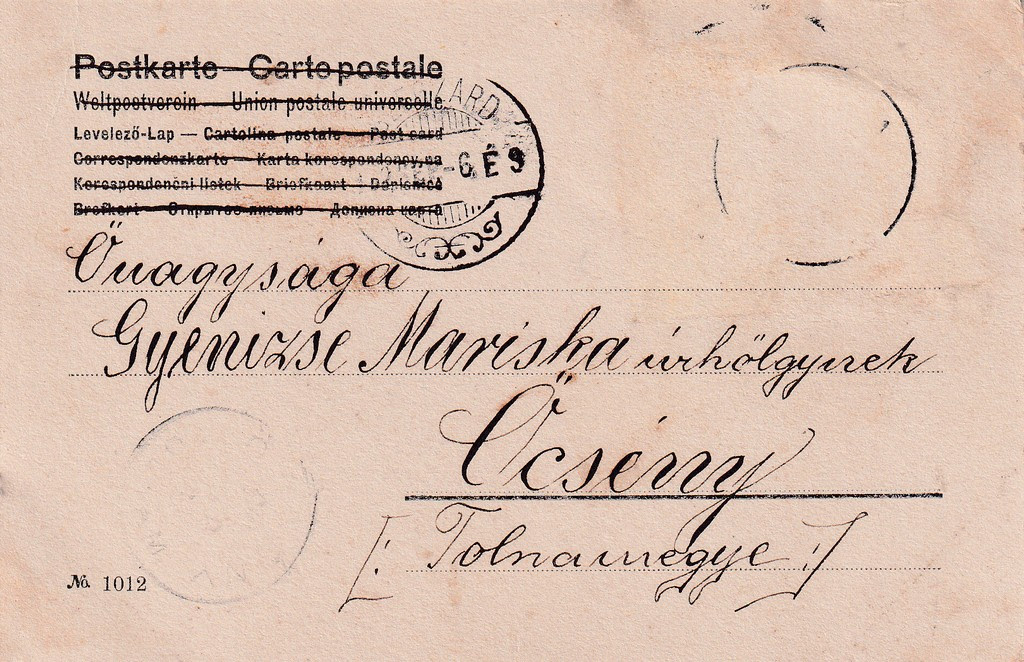 Postkarte — Carte postale
Weltpostverein — Union postale universelle
Levelező-Lap — Cartolina postale — Post card
Correspondenzkarte — Karta korespondencyjna
Korespondenční lístek — Briefkaart — Dopisnice
Brefkort — Открытое письмо — Дописна карта
-6.É 9
Őnagysága
Gyenizse Mariska úrhölgynek
Őcsény
[: Tolnamegye :]
No. 1012